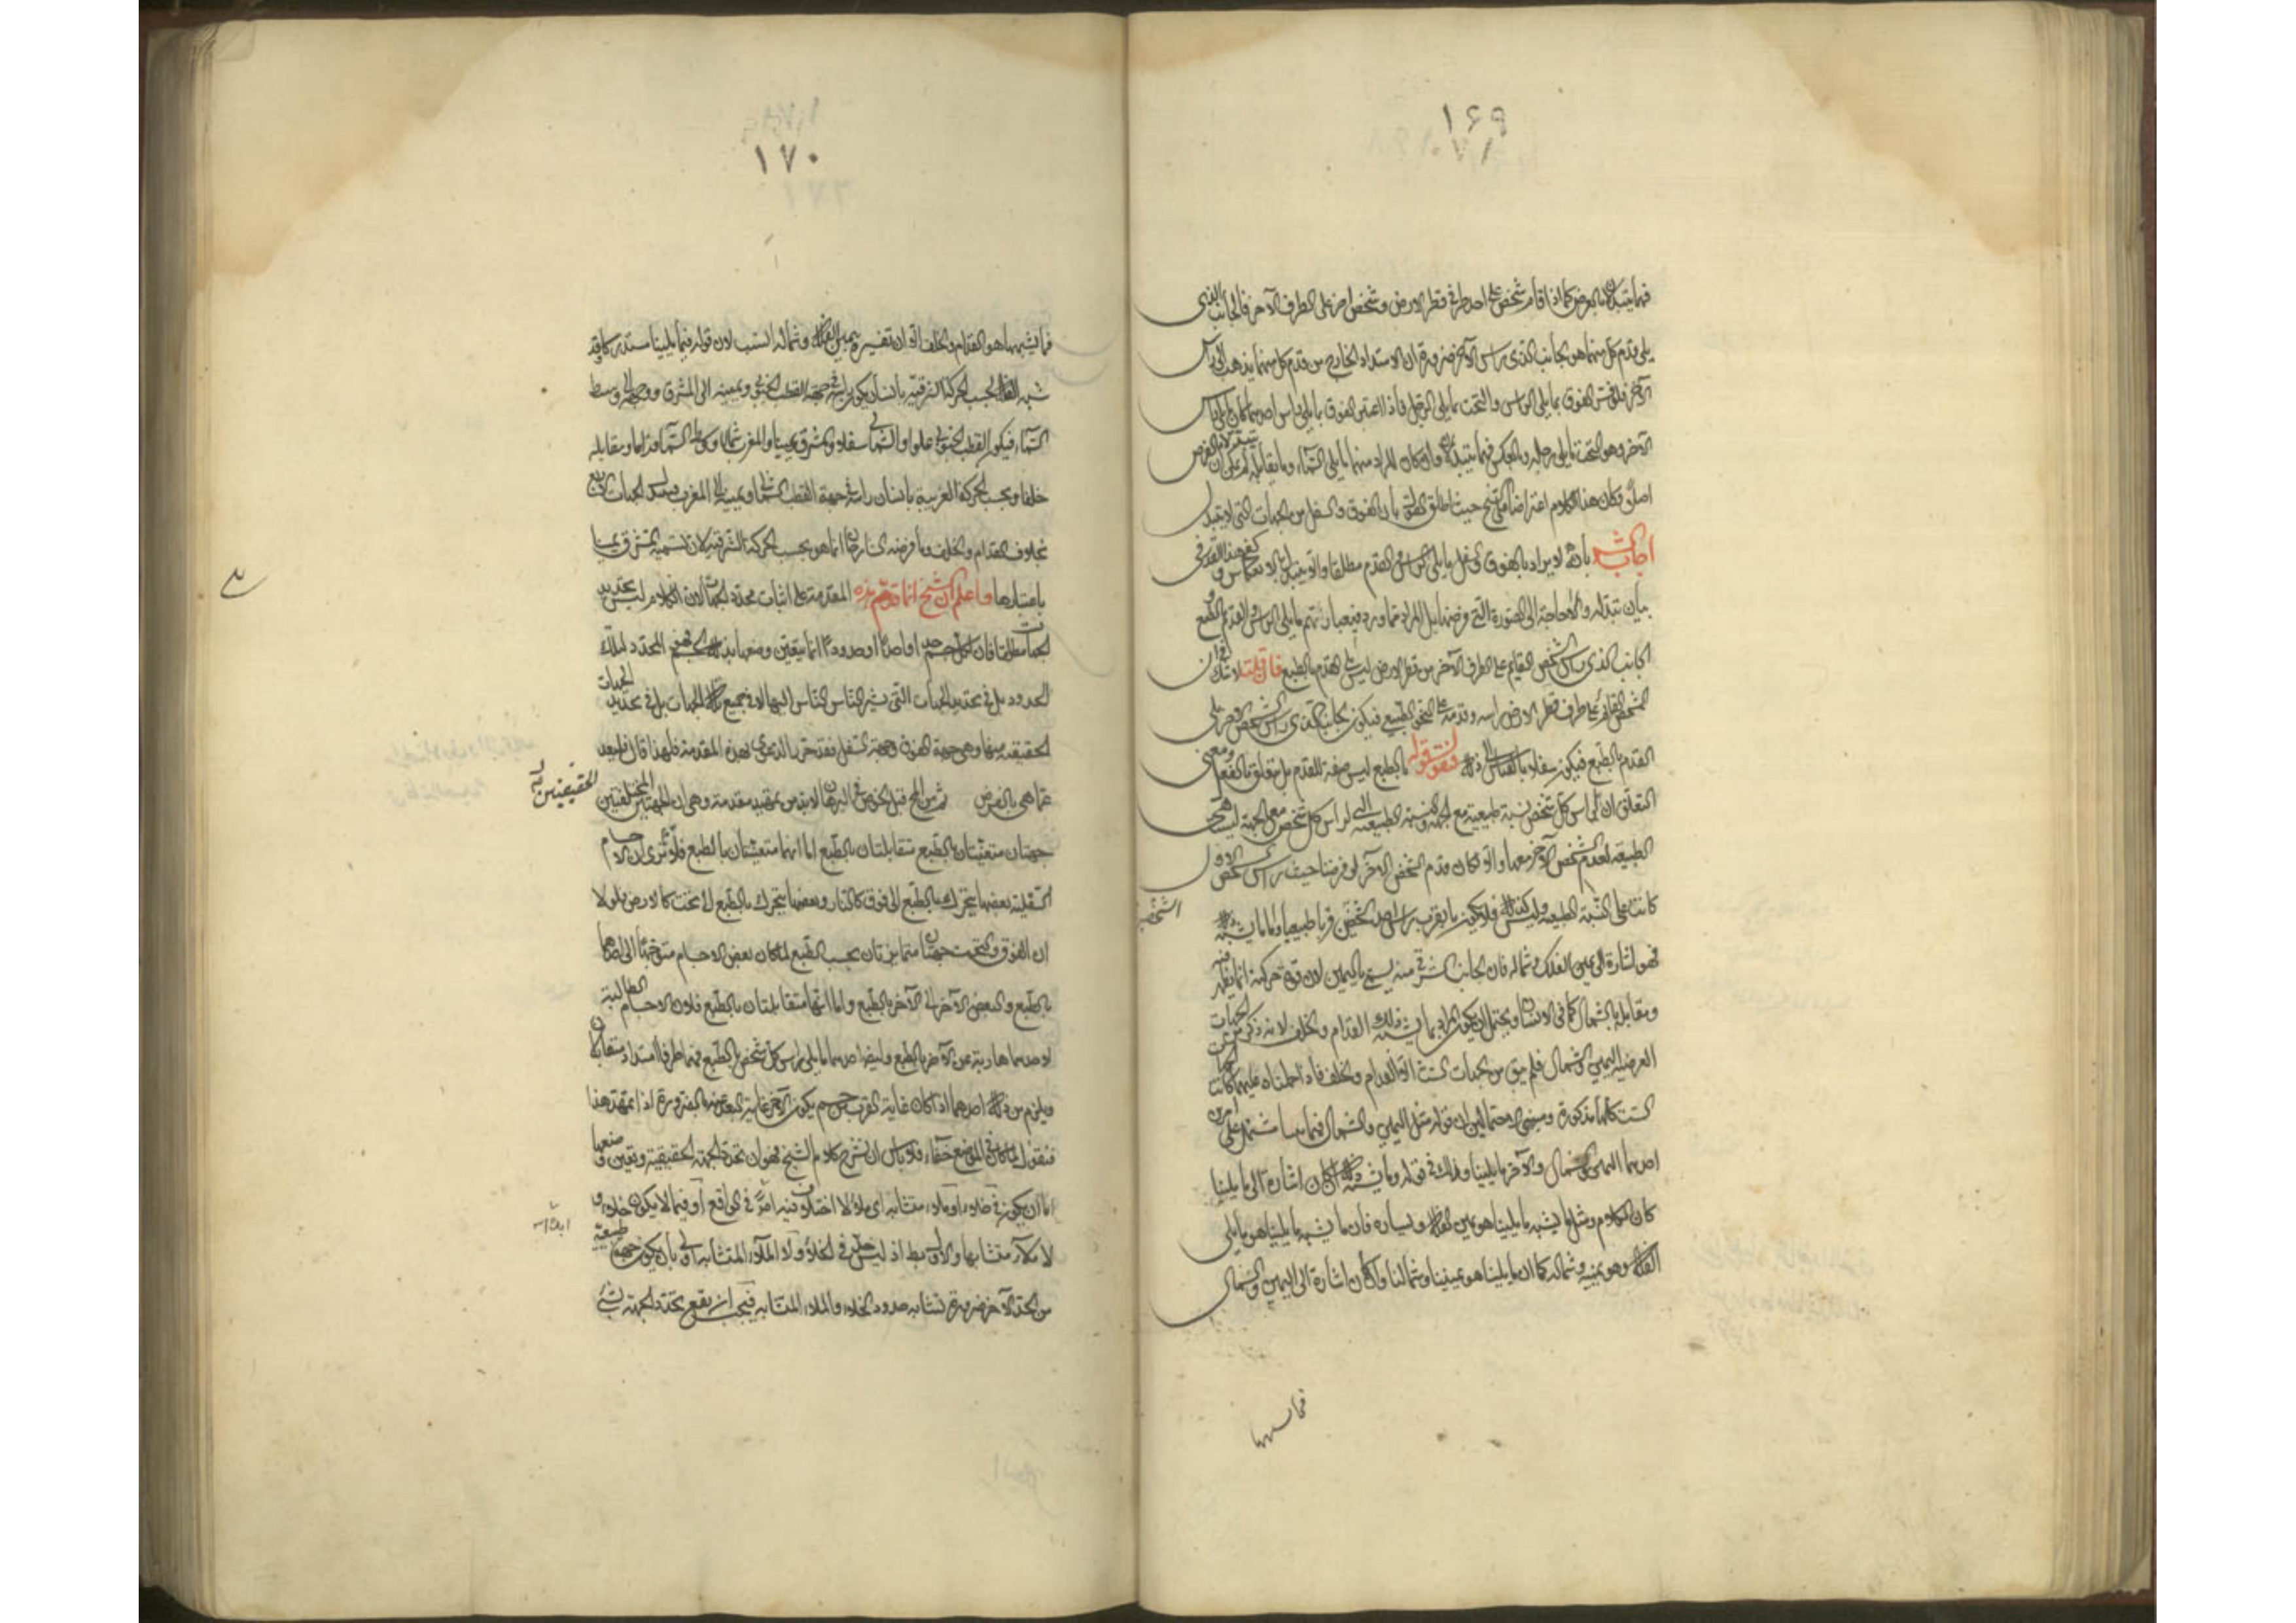 ١٦٩
فيما يتبدلان بالعرض كما اذا قام شخص على احد طرفى قطر الارض وشخص اخر على الطرف الآخر فالجانب الذى
يلى قدم كل منهما هو الجانب الذى يلى راس الآخر ضرورة ان الامتداد الخارج من قدم كل منهما يذهب الى راس
الآخر فلو فسّر الفوق بما يلى الراس والتحت بما يلى الرجل فاذا اعتبر الفوق ما يلى راس احدهما كان ما يلى راس
الآخر وهو التحت ما يلى رجليه وبالعكس فهما يتبدلان وان كان المراد منهما ما يلى السماء وما يقابله لم يكن بالعرض
اصلا فكان هذا الكلام اعتراضا على الشيخ حيث اطلق القول بان الفوق والسفل من الجهات التى لا يتبدل
اجاب الش بانه لا يراد بالفوق والسفل ما يلى الراس والقدم مطلقا والا يتبدلان بالانعكاس و كفى هذا القدر فى
بيان تبدله ولا حاجة الى الصورة التى فرضها بل المراد مما ورد فى عباراتهم ما يلى الراس والقدم بالطبع و
الجانب الذى يلى راس الشخص القايم على الطرف الآخر من قطر الارض ليس يلى القدم بالطبع فان قلت لا شك ان
الشخص القائم على طرف قطر الارض راسه وقدمه على النحو الطبيعى فيكون الجانب الذى يلى راس الشخص الآخر يلى
القدم بالطبع فيكون سفلا بالقياس الى ذلك فنقول قوله بالطبع ليس صفة للقدم بل متعلق بالفعل ومعنى
التعلق ان لراس كل شخص نسبة طبيعية مع الجهة والنسبة الطبيعية التى لراس كل شخص مع الجهة ليست هى
الطبيعية لقدم الشخص الآخر معها والا لكان قدم الشخص الآخر لو فرضنا حيث راس الشخص الاول
كانت على النسبة الطبيعية وليس كذلك فلا يكون ما يقرب من راس احد الشخصين قربا طبيعيا واما ما يشبه ذلك
الشخصين
فهو اشارة الى يمين الفلك وشماله فان الجانب الشرقى منه يسمى باليمين لان قوة حركته انما تظهر منه
ومقابله بالشمال كما فى الانسان ويحتمل ان يكون المراد بما يشبه ذلك القدام والخلف لانه ذكر من الجهات
العرضية اليمين والشمال فلم يبق من الجهات الست الا القدام والخلف فاذا حملناه عليهما كانت الجهات
الست كلها مذكورة ومبنى الاحتمالين ان قوله مثل اليمين والشمال فيما يلينا مشتمل على امرين
احدهما اليمين والشمال والآخر ما يلينا وذلك فى قوله وما يشبه ذلك ان كان اشارة الى ما يلينا
كان الكلام ومثل ما يشبه ما يلينا هو يمين الفلك ويساره فان ما يشبه ما يلينا هو ما يلى
الفلك وهو يمينه وشماله كما ان ما يلينا هو يميننا وشمالنا وان كان اشارة الى اليمين والشمال
فما يشبههما
١٧٠
فما يشبههما هو القدام والخلف الا ان تفسيره بيمين الفلك وشماله انسب لان قوله فيما يلينا مستدرك وقد
شبه الفلك بحسب الحركة الشرقية بانسان يكون راسه فى جهة القطب الجنوبى ويمينه الى المشرق ووجهه الى وسط
السماء فيكون القطب الجنوبى علوا والشمالى سفلا والمشرق يمينا والمغرب شمالا ووسط السماء قداما ومقابله
خلفا وبحسب الحركة الغربية بانسان راسه فى جهة القطب الشمالى ويمينه الى المغرب ويتبدل الجهات الاربع
بخلاف القدام والخلف وما فرضه الشارح انما هو بحسب الحركة الشرقية لان تسمية المشرق يمينا
باعتبارها واعلم ان الشيخ انما قدم هذه المقدمة على اثبات محدد الجهات لان الكلام ليس فى تحديد
الجهات مطلقا فان لكل جسم حدا واحدا او حدودا انما يتعين وضعها بذلك الجسم فهو المحدد لتلك
الحدود بل فى تحديد الجهات التى يشير الناس اليها لا فى جميع تلك الجهات بل فى تحديد الجهات
الحقيقية منها وهى جهة الفوق وجهة السفل فقد حرر الدعوى بهذه المقدمة فلهذا قال فلنعد
عما هى بالعرض ثم من المهم قبل الخوض فى البرهان لابد من تمهيد مقدمة وهى ان الجهتين المختلفتين
الحقيقيتين
جهتان متعينتان بالطبع متقابلتان بالطبع اما انهما متعينتان بالطبع فلانا نرى ان الاجسام
الثقيلة بعضها يتحرك بالطبع الى فوق كالنار وبعضها يتحرك بالطبع الى تحت كالارض فلولا
ان الفوق والتحت جهتان متمايزتان بحسب الطبع لما كان بعض الاجسام متوجها الى احدهما
بالطبع والبعض الآخر الى الآخر بالطبع واما انهما متقابلتان بالطبع فلان الاجسام الطالبة
لاحدهما هاربة عن الآخر بالطبع وايضا احدهما ما يلى راس كل شخص بالطبع فهما طرفا امتداد متقابلان
ويلزم من ذلك احدهما اذا كان غاية القرب من جسم يكون الآخر غاية البعد عنه بالضرورة اذا تمهد هذا
فنقول لما كان فى الموضع خفاء فلا باس ان نشرح كلام الشيخ فهو ان تحدد الجهة الحقيقية وتعين وضعها
اما ان يكون فى خلاء او ملاء متشابه اى ملاء لا اختلاف فيه امر فى الواقع او فيما لا يكون خلاء و
لا ملاء متشابها والاول بط اذ ليس حد فى الخلاء ولا الملاء المتشابه اولى بان يكون جهة طبيعية
من الحد الآخر ضرورة تشابه حدود الخلاء والملاء المتشابه فيجب ان يقع تحدد الجهة بشئ